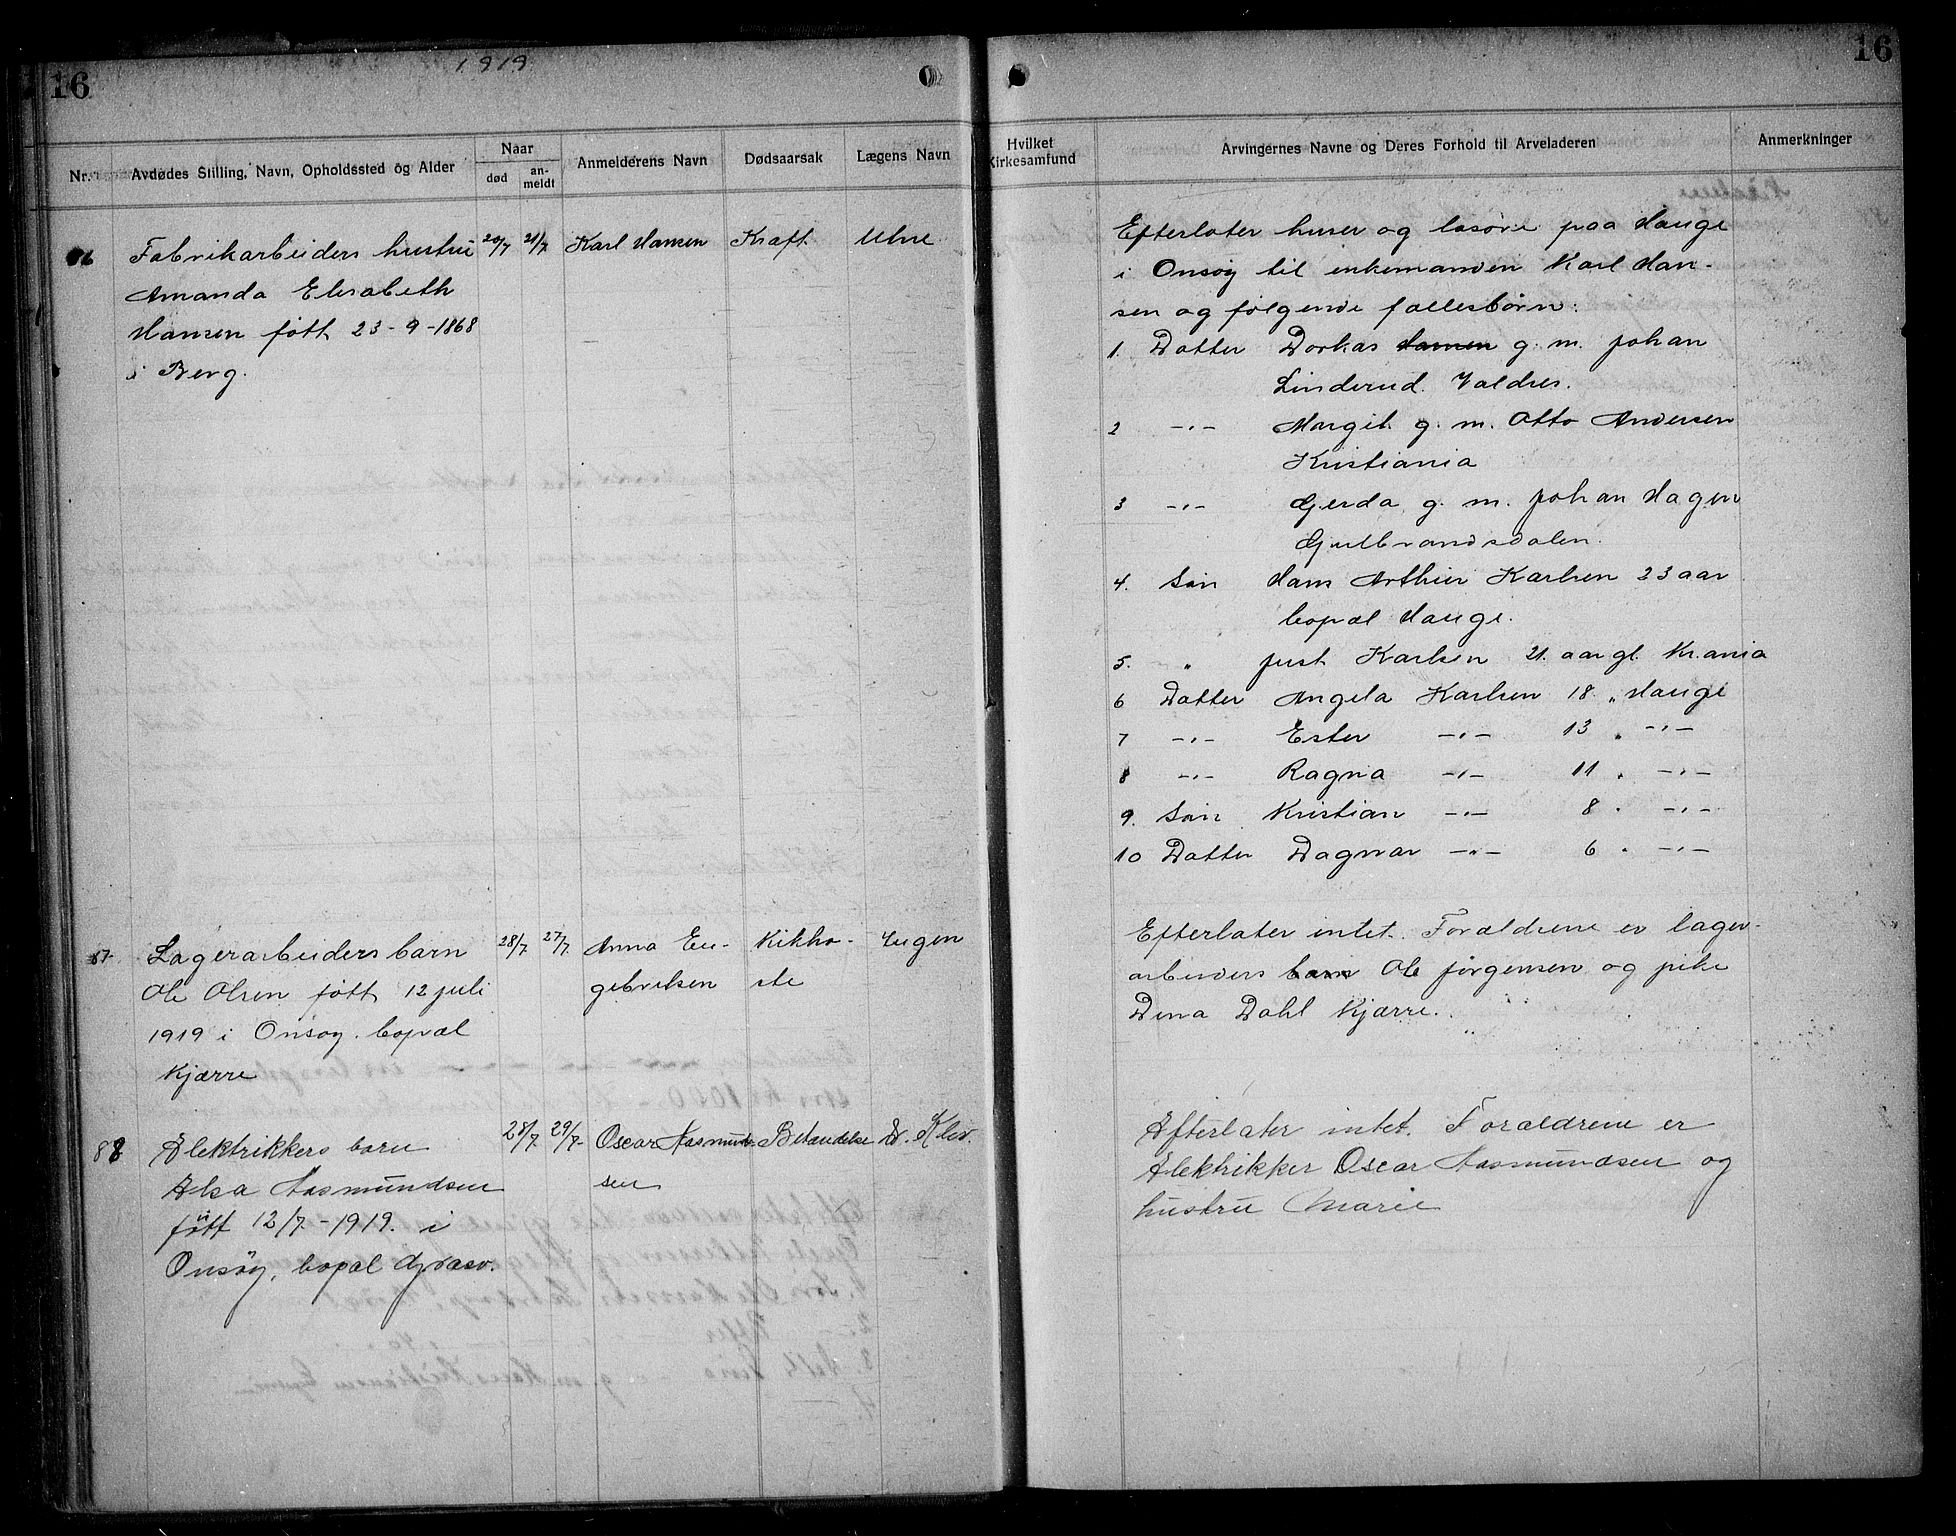 1919
16
16
Nr. Avdødes Stilling, Navn, Opholdssted og Alder Naar død anmeldt Anmelderens Navn Dødsaarsak Lægens Navn
Hvilket Kirkesamfund Arvingernes Navne og Deres Forhold til Arveladeren Anmerkninger
86 Fabrikarbeiders hustru 20/7 21/7 Karl Hansen Kræft
Amanda Elisabeth
Hansen född 23-9-1868
i Berg.
Efterlater huser og løsøre paa Hauge
i Onsøy til enkemanden Karl Han-
sen og følgende fællesbørn:
1. Datter Dorkas Hansen g. m. Johan
Linderud. Valdres.
2 -"- Margit g. m. Otto Andersen
Kristiania
3 -"- Gerda g. m. Johan Hagen
Gudbrandsdalen.
4. Søn Hans Arthur Karlsen 23 aar
bopæl Hauge.
5. " Just Karlsen 21. aar gl. Kr.ania
6 Datter Angela Karlsen 18 " Hauge
7 -"- Ester -"- 13 " -"-
8 -"- Ragna -"- 11 " -"-
9. Søn Kristian -"- 8 " -"-
10 Datter Dagmar -"- 6 " -"-
87 Lagerarbeiders barn 28/7 27/7. Anna En- Kikho- Jugen
Ole Olsen född 12 juli gebretsen ste
1919 i Onsøy. bopæl
Kjærre
Efterlater intet. Forældrene er lager-
arbeiders barn Ole Jørgensen og pike
Dina Dahl Kjærre.
88 Elektrikkers barn 28/7 29/7- Oscar Aasmund- Betændelse Dr. Klev.
Elsa Aasmundsen sen
född 12/7.-1919. i
Onsøy, bopæl Græsv.
Efterlater intet. Forældrene er
Elektrikker Oscar Aasmundsen og
hustru Marie